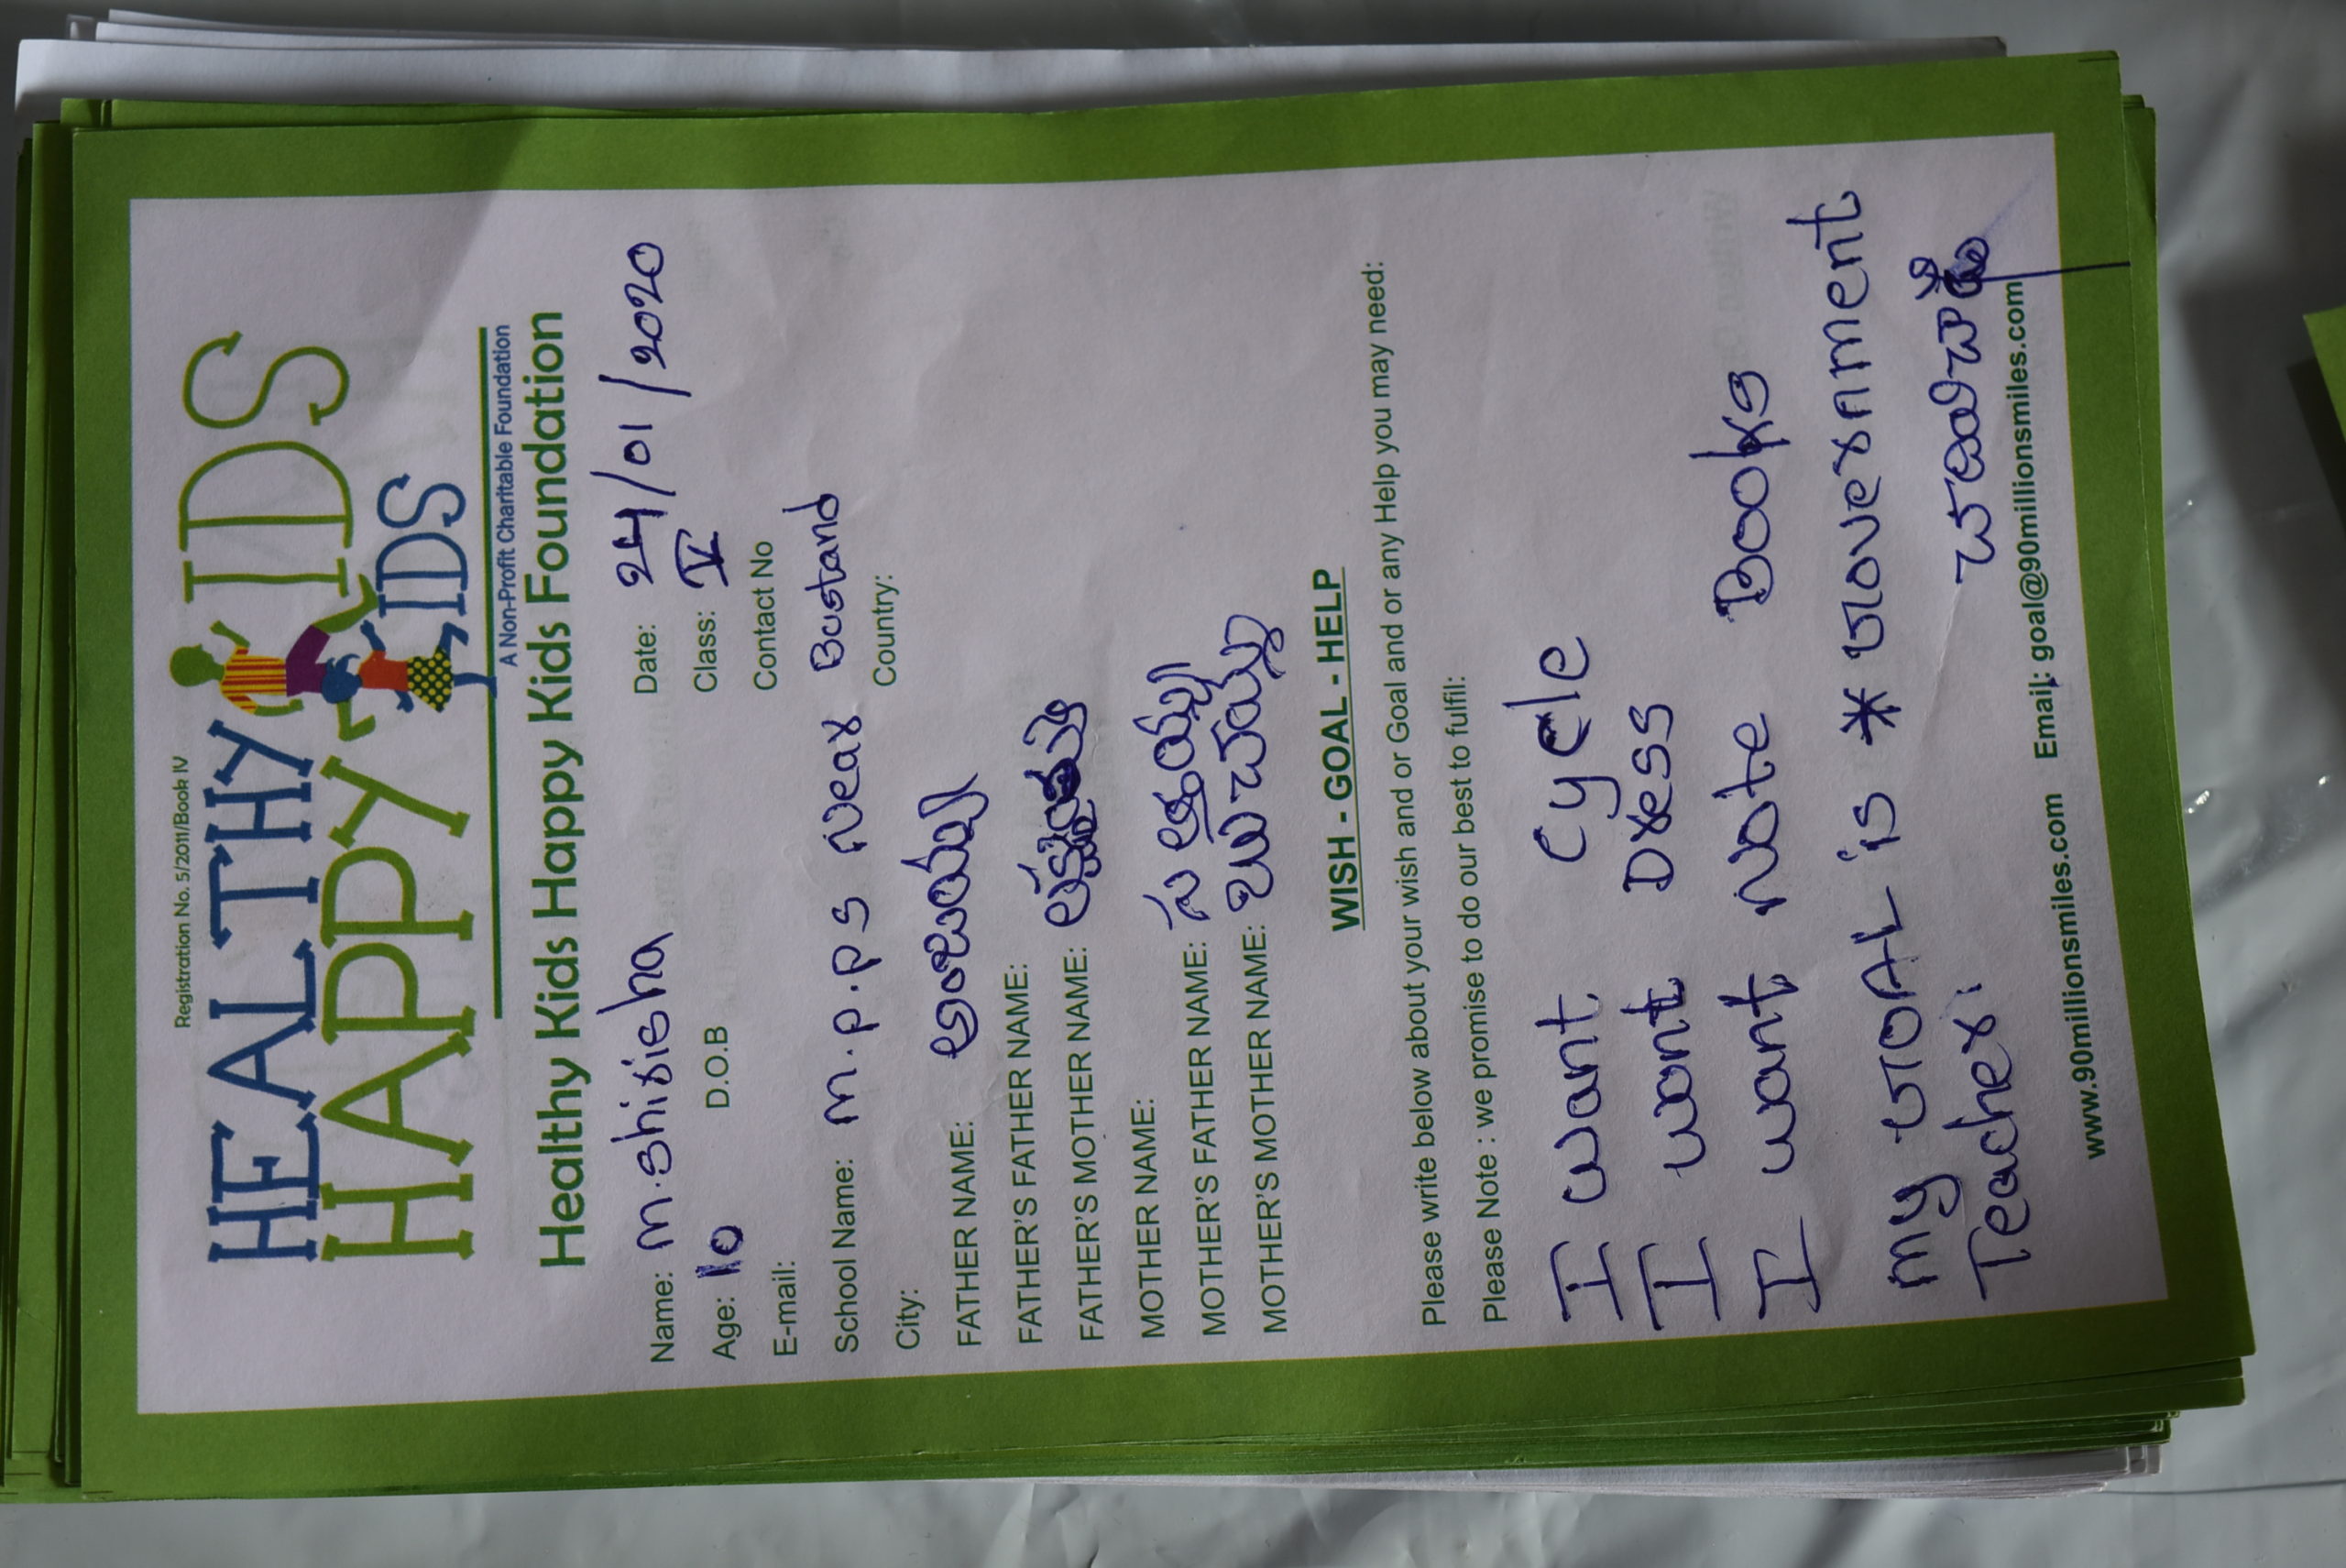 Registration No. 5/2011/Book IV
HEALTHY KIDS
HAPPY KIDS
A Non-Profit Charitable Foundation
Healthy Kids Happy Kids Foundation
Name: M.Shirisha Date: 24/01/2020
Age: 10 D.O.B Class: V
E-mail: Contact No
School Name: M.P.P.S Near Bustand
City: Country:
FATHER NAME: అంజయ్య
FATHER'S FATHER NAME:
FATHER'S MOTHER NAME:
MOTHER NAME:
MOTHER'S FATHER NAME:
MOTHER'S MOTHER NAME: బుచమ్మ
WISH - GOAL - HELP
Please write below about your wish and or Goal and or any Help you may need:
Please Note : we promise to do our best to fulfil:
I want cycle
I want Dress
I want Note Books
My GOAL is * Government
Teacher.
www.90millionsmiles.com Email: goal@90millionsmiles.com